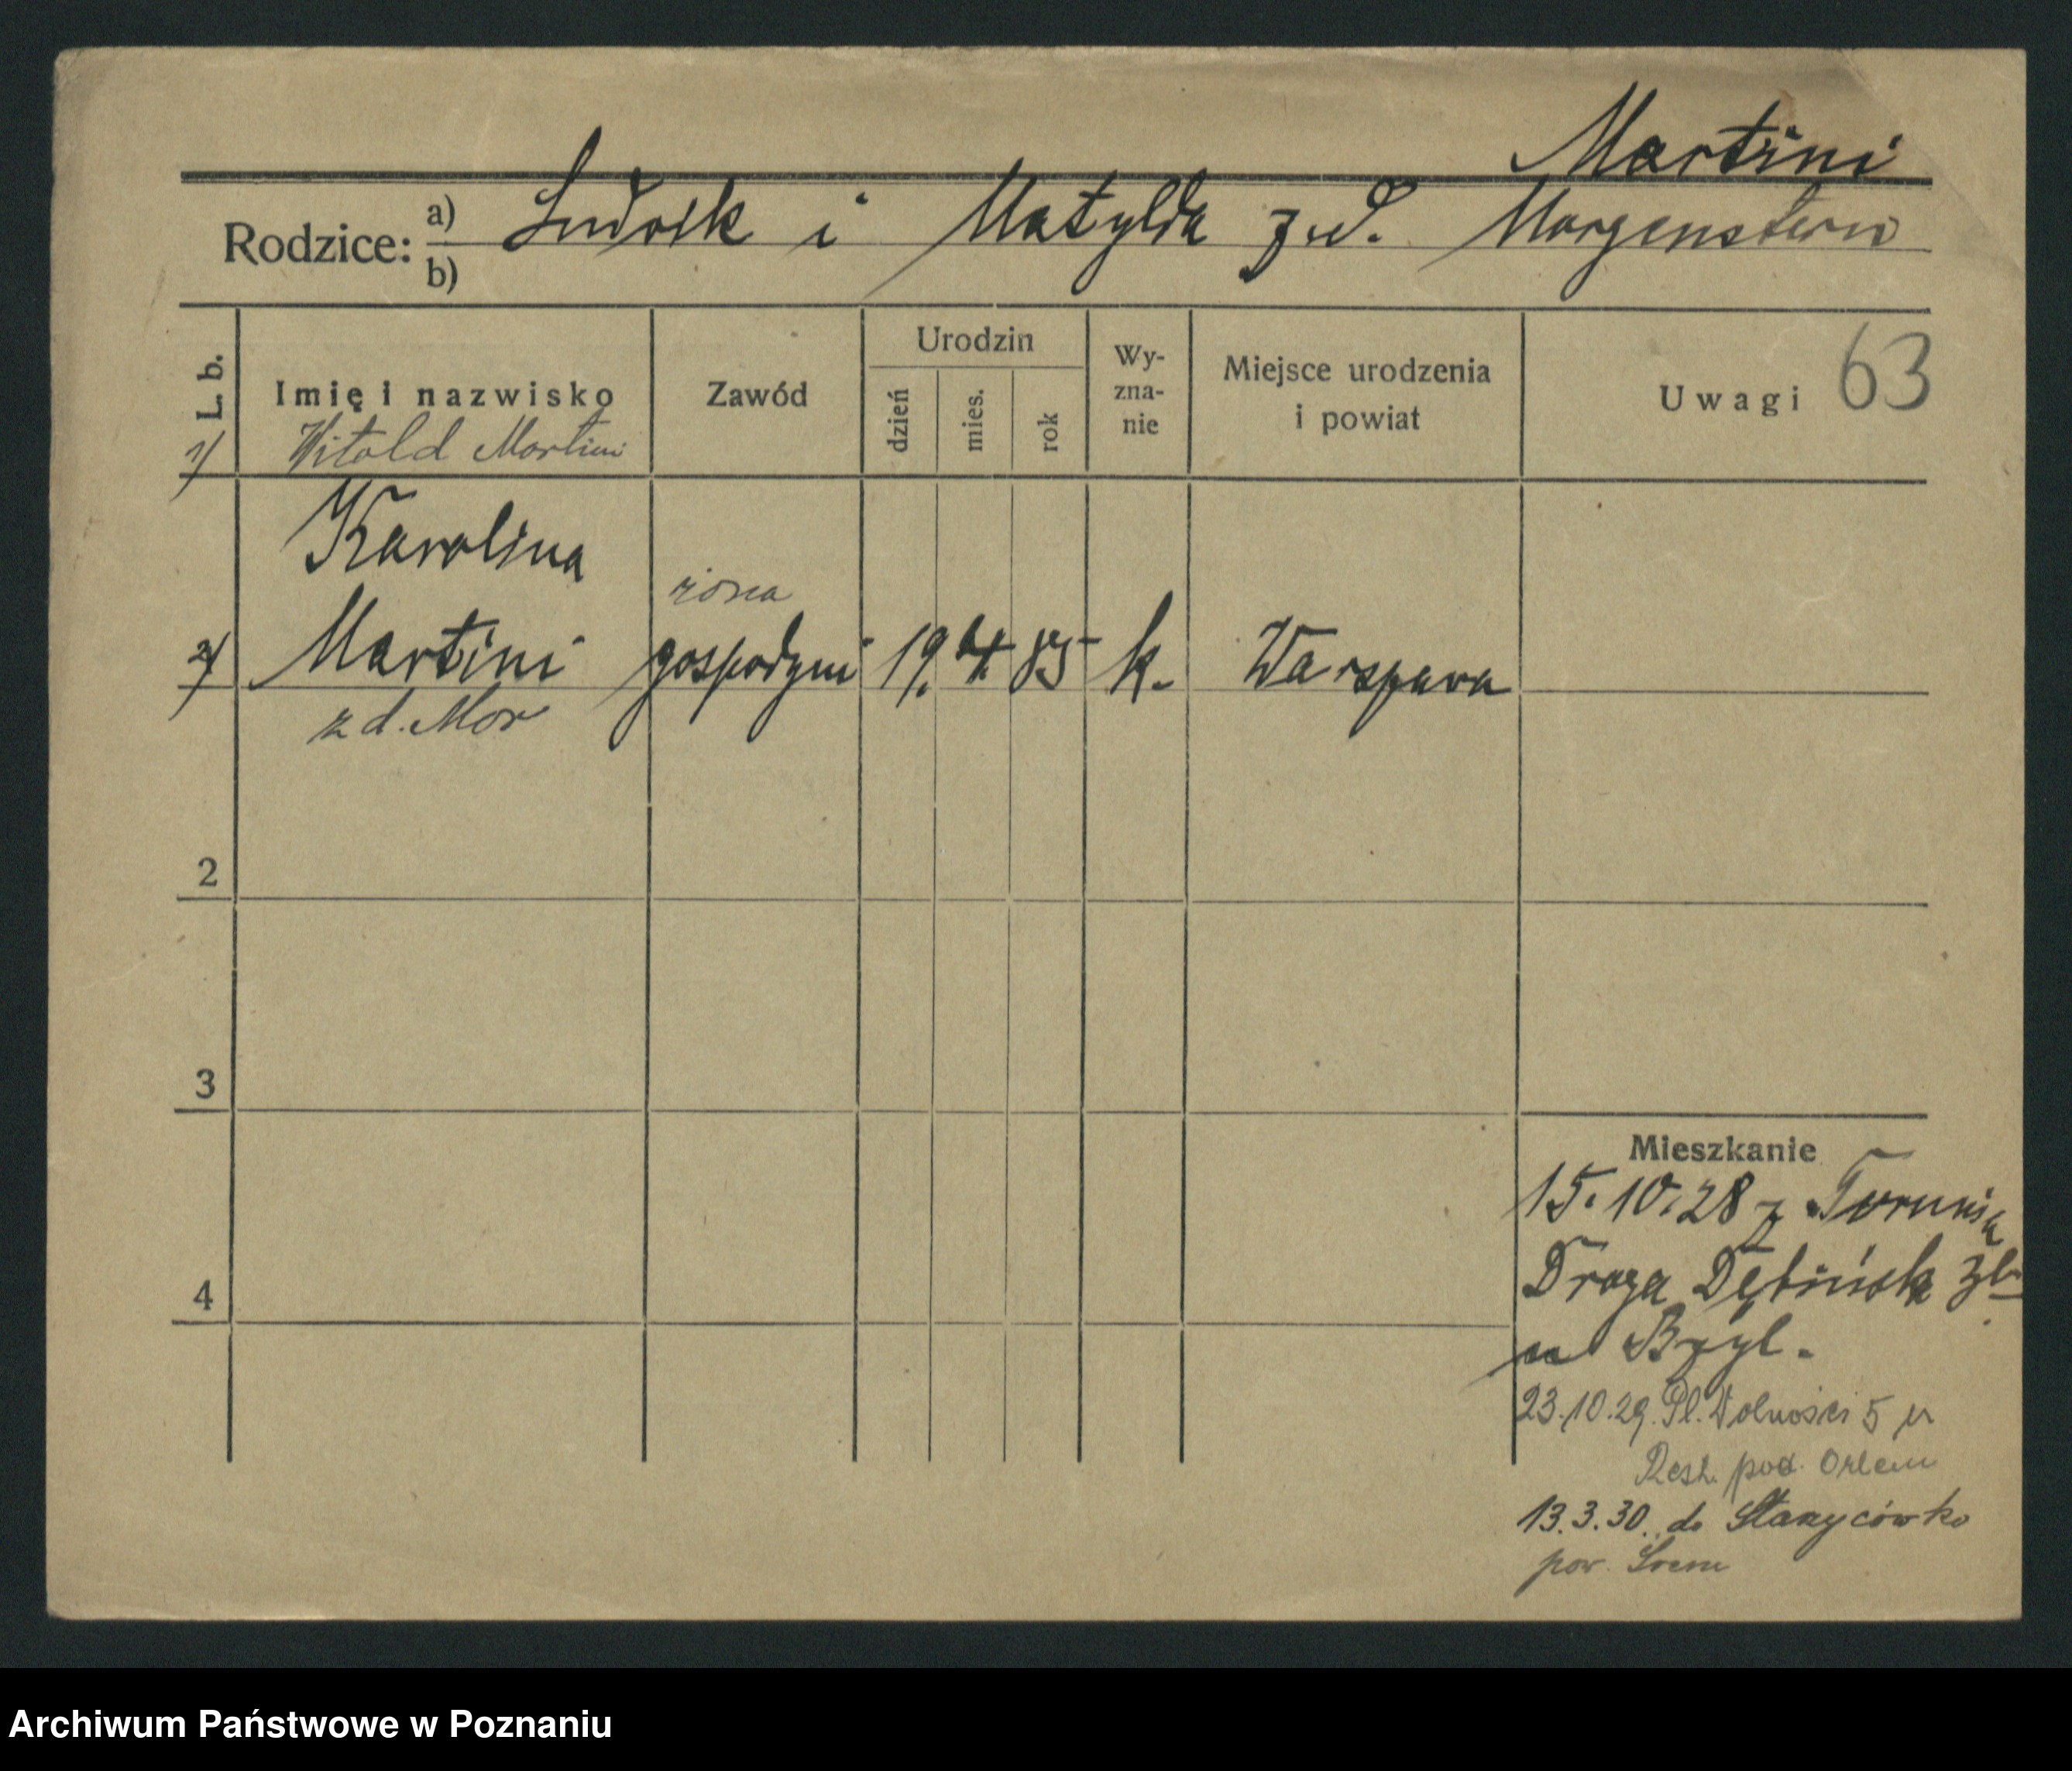 Martini
Rodzice: a) Ludwik i Matylda z.d. Morgenstern
b)
L. b. Imię i nazwisko Zawód Urodzin dzień mies. rok Wy-zna-nie Miejsce urodzenia i powiat Uwagi 63
1) Witold Martini
Karolina
żona
2) Martini gospodyni 19. 4 85 k. Warszawa
z d. Mor
2
3
Mieszkanie
15.10.28 z Torunia
Droga Dębińska
4
u Bzyl.
23.10.29. Pl. Wolności 5 u
Rest. pod. Orłem
13.3.30. do
pow. Śrem
Archiwum Państwowe w Poznaniu